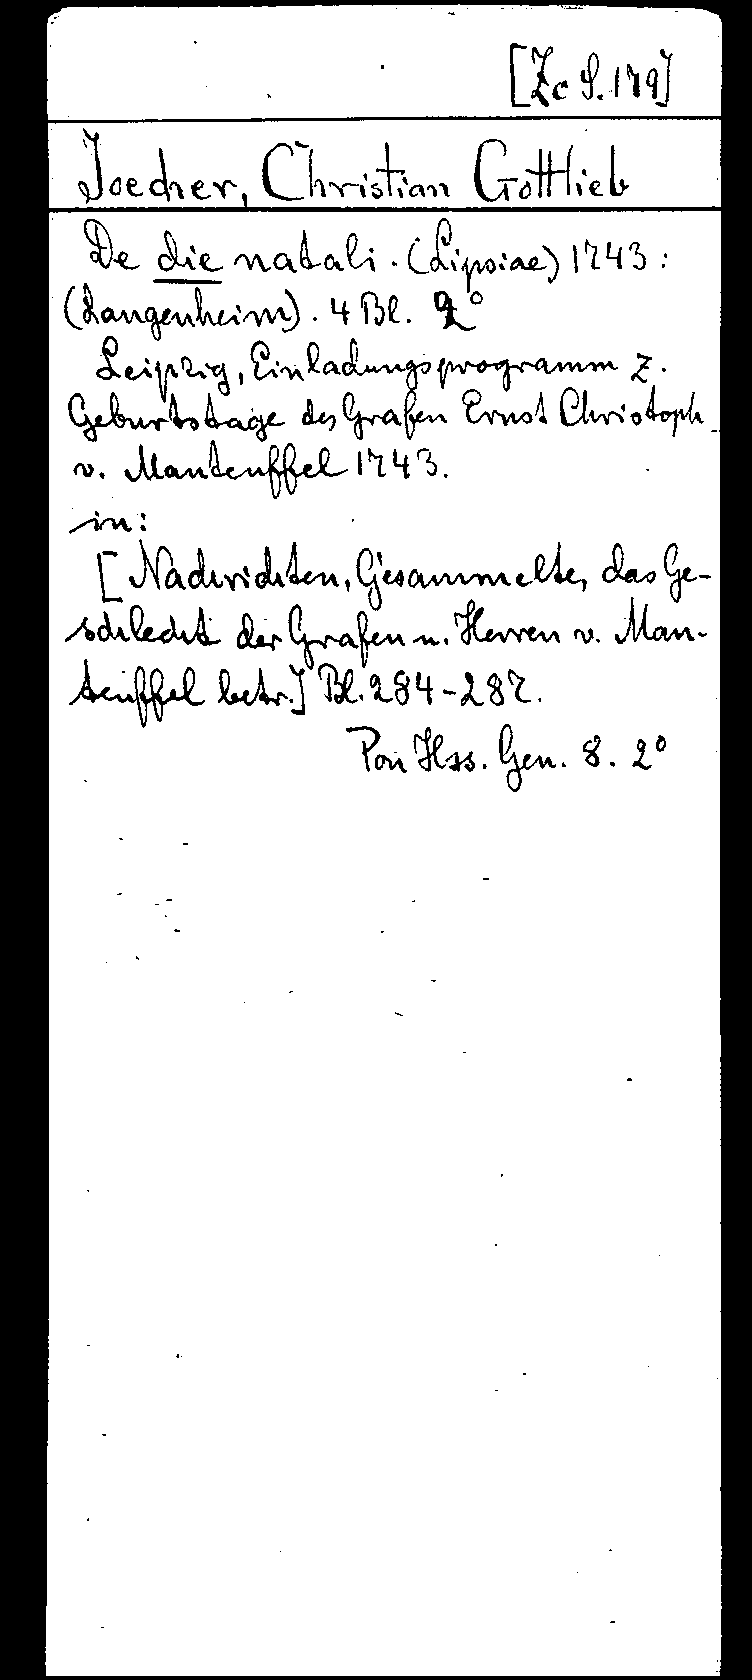 [Zc S. 179]
Joecher, Christian Gottlieb
De die natali. (Lipsiae) 1743:
(Langenheim). 4 Bl. 2°
Leipzig, Einladungsprogramm z.
Geburtstage des Grafen Ernst Christoph
v. Manteuffel 1743.
in:
[Nachrichten, Gesammelte, das Ge-
schlecht der Grafen u. Herren v. Man-
teuffel betr.] Bl. 284-287.
Pon Hss. Gen. 8. 2°